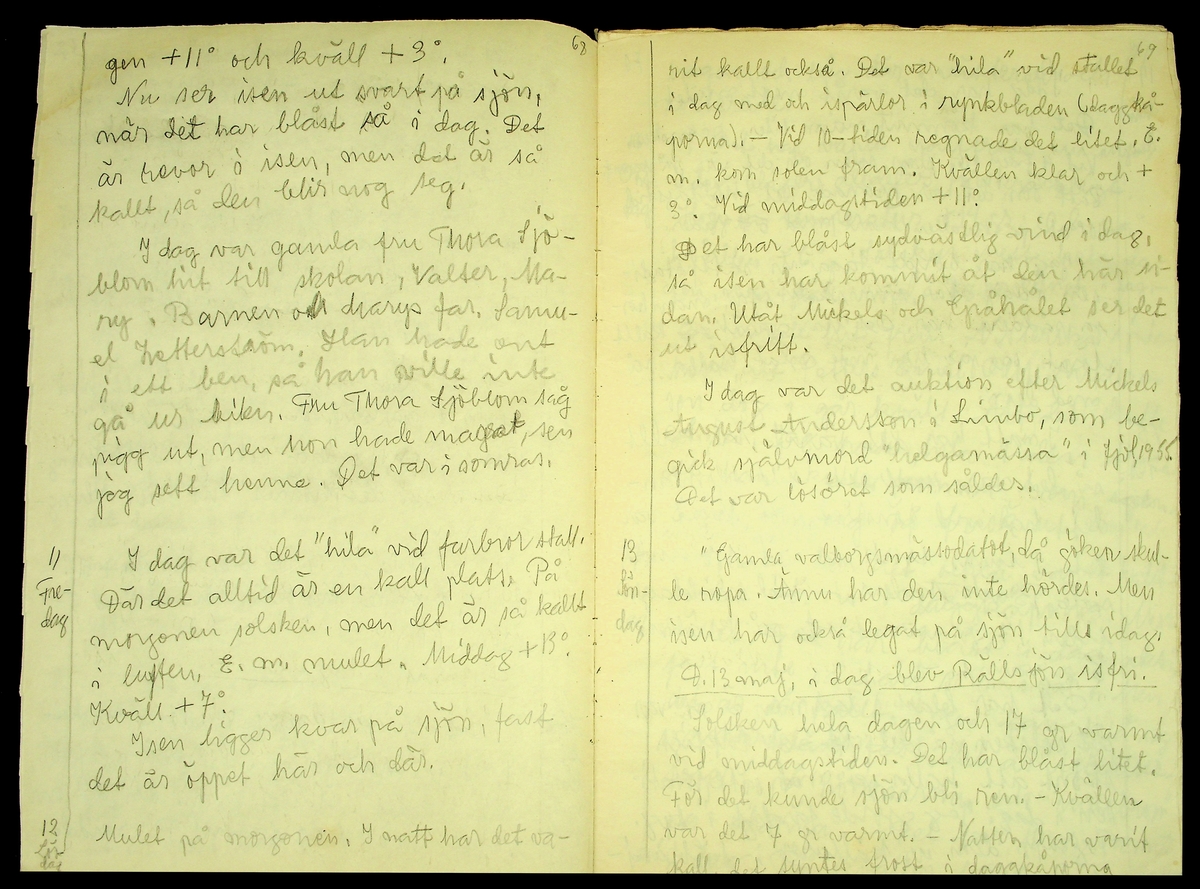 68
gen +11° och kväll +3°.
Nu ser isen ut svart på sjön,
när det har blåst så i dag. Det
är revor i isen, men det är så
kallt, så den blir nog seg.
I dag var gamla fru Thora Sjö-
blom hit till skolan, Valter, Ma-
ry. Barnen och Marys far. Samu-
el Zetterström. Han hade ont
i ett ben, så han ville inte
gå ur bilen. Fru Thora Sjöblom såg
pigg ut, men hon hade magrat, sen
jag sett henne. Det var i somras.
11
Fre-
dag
I dag var det "hila" vid farbror stall.
Där det alltid är en kall plats. På
morgonen solsken, men det är så kallt
i luften. E. m. mulet. Middag +13°.
Kväll +7°.
Isen ligger kvar på sjön, fast
det är öppet här och där.
12
Lör
dag
Mulet på morgonen. I natt har det va-
69
rit kallt också. Det var "hila" vid stallet
i dag med och ispärlor i rynkbladen (daggkå-
porna). – Vid 10-tiden regnade det litet. E.
m. kom solen fram. Kvällen klar och +
3°. Vid middagstiden +11°.
Det har blåst sydvästlig vind i dag,
så isen har kommit åt den här si-
dan. Utåt Mickels och Gpåhålet ser det
ut isfritt.
I dag var det auktion efter Mickels
August Andersson i Limbo, som be-
gick självmord "helgamässa" i fjol, 1955.
Det var lösöret som såldes.
13
Sön-
dag
"Gamla valborgsmässodatot, då göken skul-
le ropa. Ännu har den inte hördes. Men
isen har också legat på sjön tills idag.
D. 13 maj, i dag blev Rällsjön isfri.
Solsken hela dagen och 17 gr varmt
vid middagstiden. Det har blåst litet.
För det kunde sjön bli ren. – Kvällen
var det 7 gr varmt. – Natten har varit
kall, det syntes frost i daggkåporna